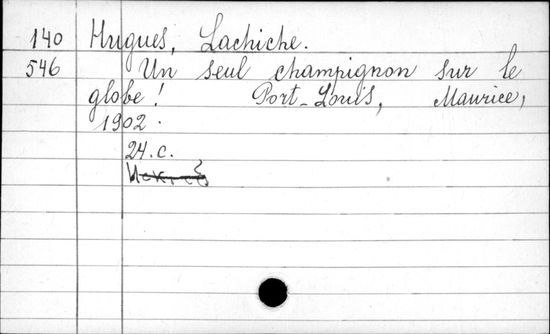 140 Hugues, Lachiche.
546 Un seul champignon sur le
globe! Port-Louis, Maurice,
1902.
24.c.